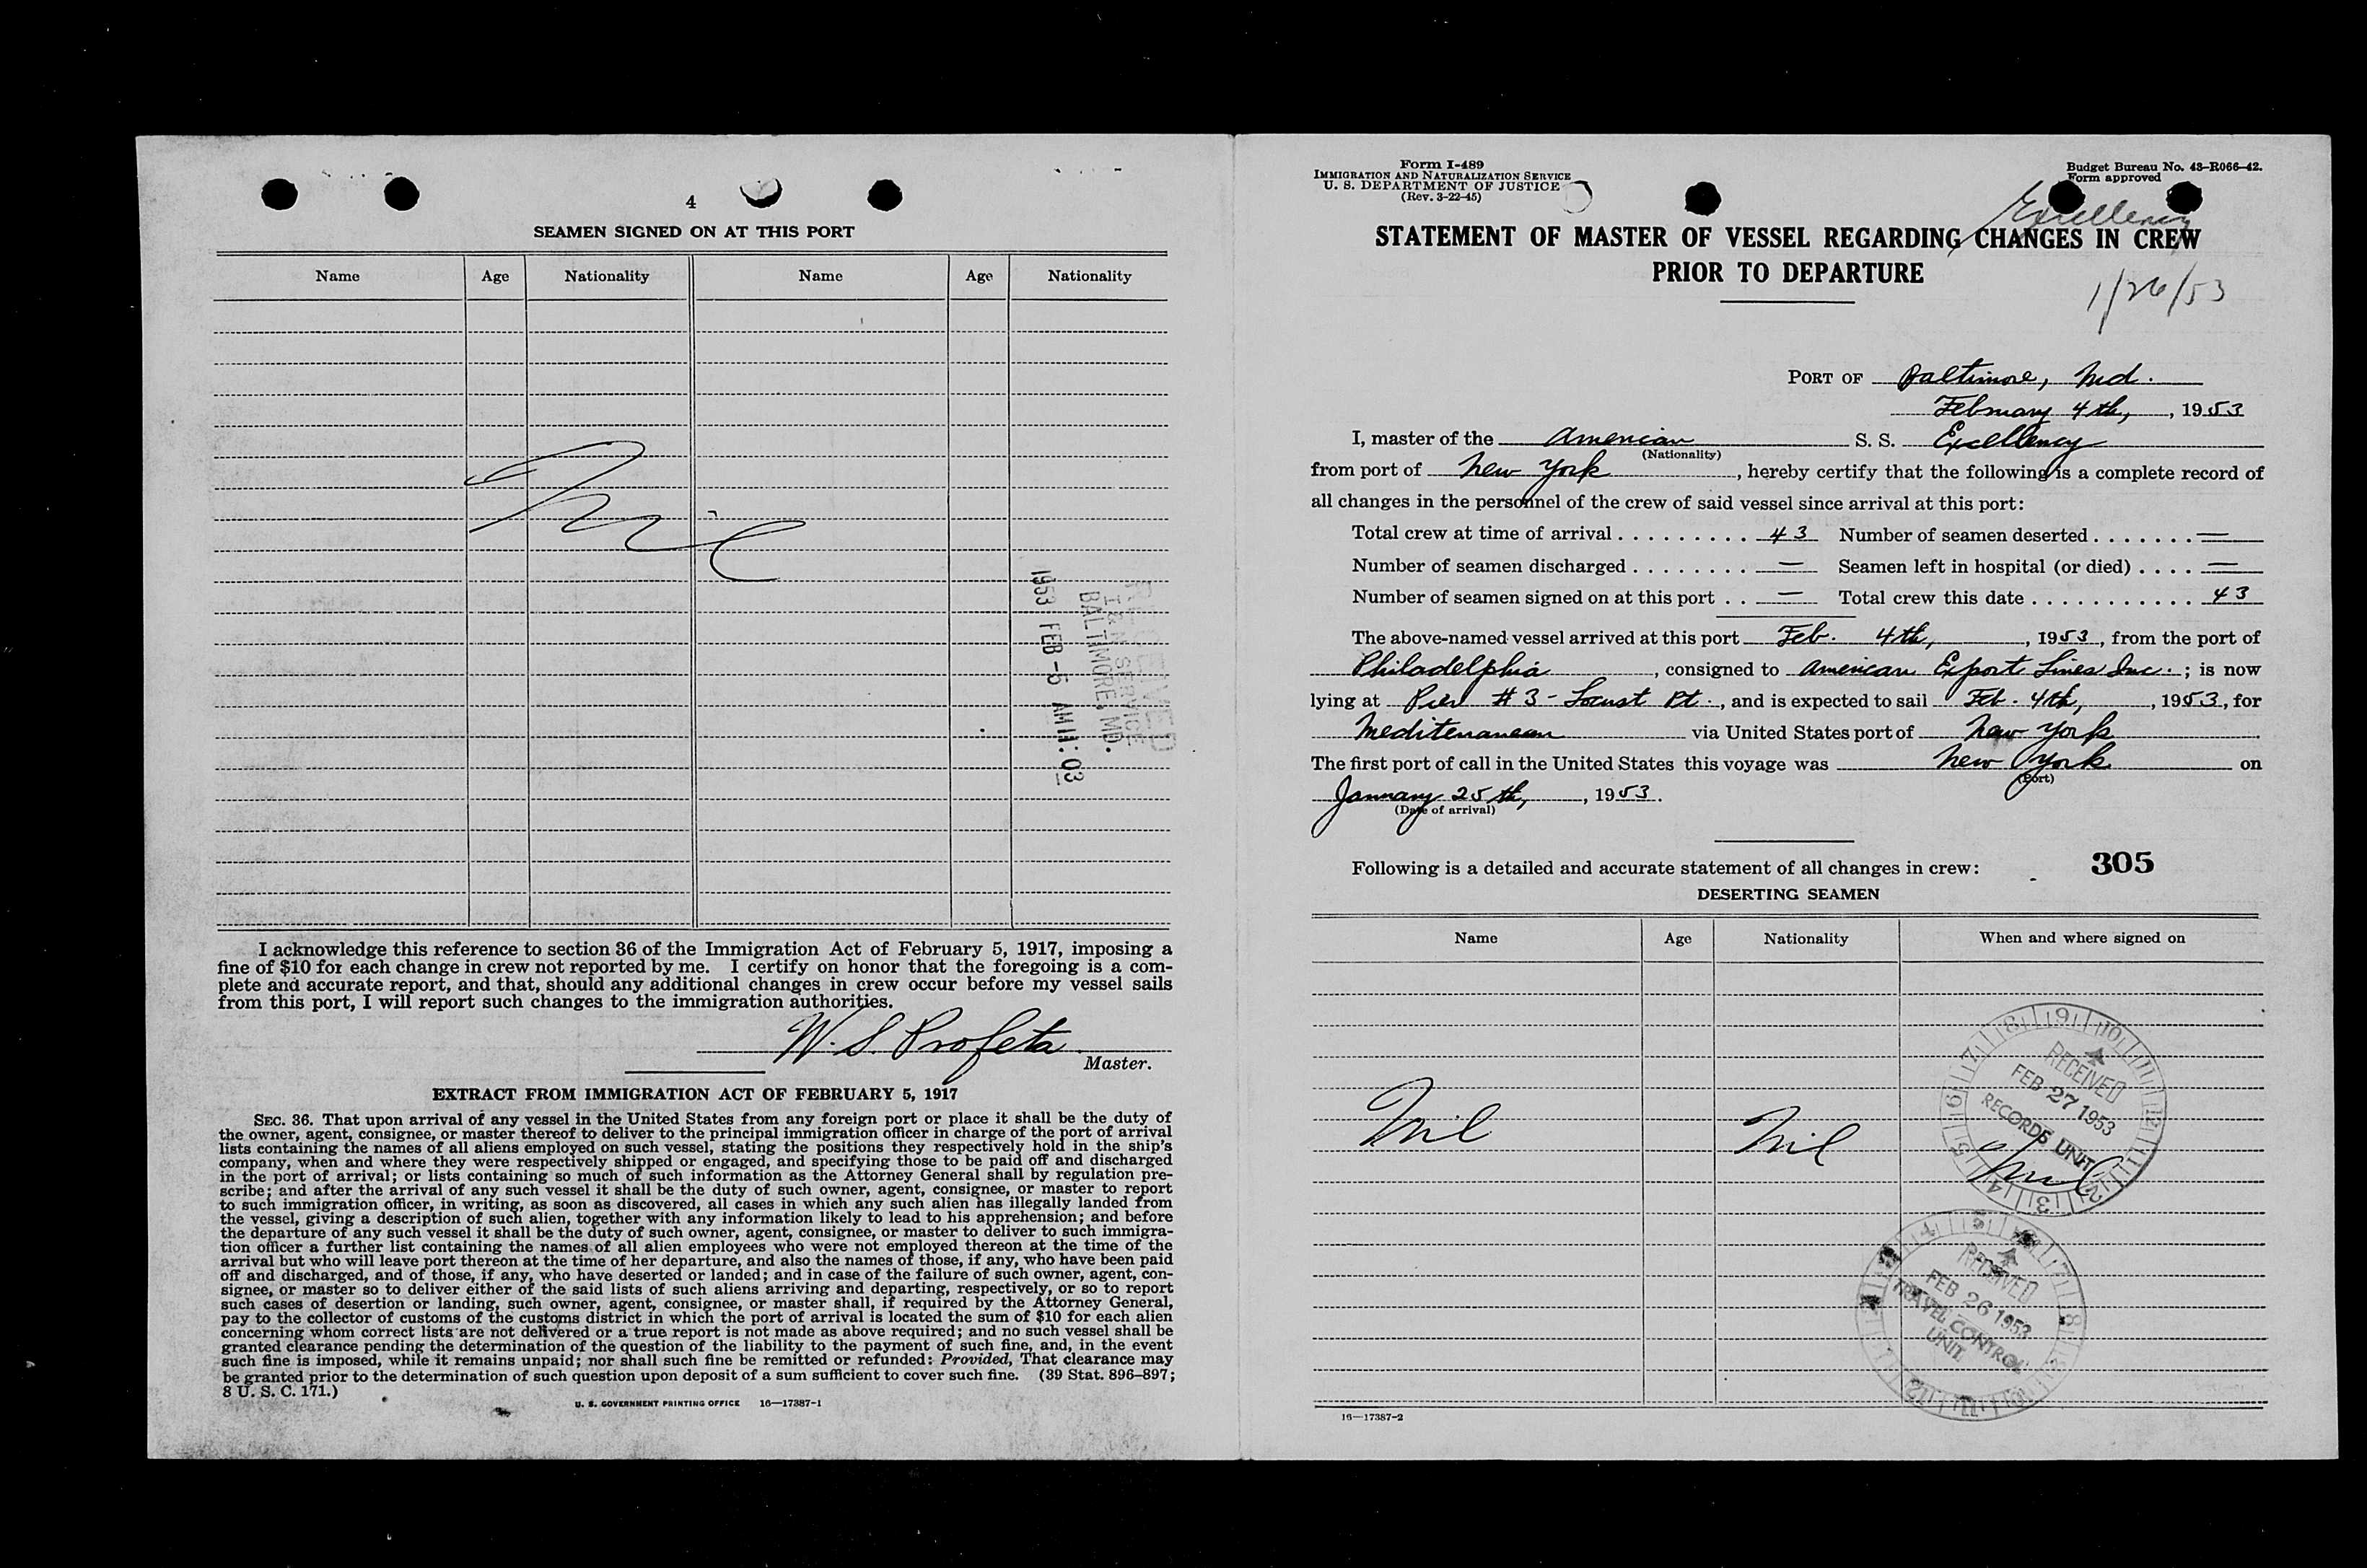 4
SEAMEN SIGNED ON AT THIS PORT
Name Age Nationality Name Age Nationality
Nil
RECEIVED
I & N SERVICE
BALTIMORE, MD.
1953 FEB -5 AM 11:03
I acknowledge this reference to section 36 of the Immigration Act of February 5, 1917, imposing a
fine of $10 for each change in crew not reported by me. I certify on honor that the foregoing is a com-
plete and accurate report, and that, should any additional changes in crew occur before my vessel sails
from this port, I will report such changes to the immigration authorities.
W. S. Profeta
Master.
EXTRACT FROM IMMIGRATION ACT OF FEBRUARY 5, 1917
SEC. 36. That upon arrival of any vessel in the United States from any foreign port or place it shall be the duty of
the owner, agent, consignee, or master thereof to deliver to the principal immigration officer in charge of the port of arrival
lists containing the names of all aliens employed on such vessel, stating the positions they respectively hold in the ship's
company, when and where they were respectively shipped or engaged, and specifying those to be paid off and discharged
in the port of arrival; or lists containing so much of such information as the Attorney General shall by regulation pre-
scribe; and after the arrival of any such vessel it shall be the duty of such owner, agent, consignee, or master to report
to such immigration officer, in writing, as soon as discovered, all cases in which any such alien has illegally landed from
the vessel, giving a description of such alien, together with any information likely to lead to his apprehension; and before
the departure of any such vessel it shall be the duty of such owner, agent, consignee, or master to deliver to such immigra-
tion officer a further list containing the names of all alien employees who were not employed thereon at the time of the
arrival but who will leave port thereon at the time of her departure, and also the names of those, if any, who have been paid
off and discharged, and of those, if any, who have deserted or landed; and in case of the failure of such owner, agent, con-
signee, or master so to deliver either of the said lists of such aliens arriving and departing, respectively, or so to report
such cases of desertion or landing, such owner, agent, consignee, or master shall, if required by the Attorney General,
pay to the collector of customs of the customs district in which the port of arrival is located the sum of $10 for each alien
concerning whom correct lists are not delivered or a true report is not made as above required; and no such vessel shall be
granted clearance pending the determination of the question of the liability to the payment of such fine, and, in the event
such fine is imposed, while it remains unpaid; nor shall such fine be remitted or refunded: Provided, That clearance may
be granted prior to the determination of such question upon deposit of a sum sufficient to cover such fine. (39 Stat. 896-897;
8 U. S. C. 171.)
U. S. GOVERNMENT PRINTING OFFICE 16—17387-1
Form I-489
IMMIGRATION AND NATURALIZATION SERVICE
U. S. DEPARTMENT OF JUSTICE
(Rev. 3-22-45)
Budget Bureau No. 43-R066-42.
Form approved
Excellency
STATEMENT OF MASTER OF VESSEL REGARDING CHANGES IN CREW
PRIOR TO DEPARTURE
1/26/53
PORT OF Baltimore, Md.
February 4th, , 1953
I, master of the American S. S. Excellency
(Nationality)
from port of New York , hereby certify that the following is a complete record of
all changes in the personnel of the crew of said vessel since arrival at this port:
Total crew at time of arrival . . . . . . . . . 43 Number of seamen deserted . . . . . . . —
Number of seamen discharged . . . . . . . . — Seamen left in hospital (or died) . . . . —
Number of seamen signed on at this port . . — Total crew this date . . . . . . . . . . . 43
The above-named vessel arrived at this port Feb. 4th, , 1953, from the port of
Philadelphia , consigned to American Export Lines Inc. ; is now
lying at Pier #3 - Locust Pt. , and is expected to sail Feb. 4th, , 1953, for
Mediterranean via United States port of New York
The first port of call in the United States this voyage was New York on
(Port)
January 25th, , 1953.
(Date of arrival)
Following is a detailed and accurate statement of all changes in crew: 305
DESERTING SEAMEN
Name Age Nationality When and where signed on
RECEIVED
FEB 27 1953
RECORDS UNIT
Nil Nil Nil
RECEIVED
FEB 26 1953
TRAVEL CONTROL
UNIT
16—17387-2